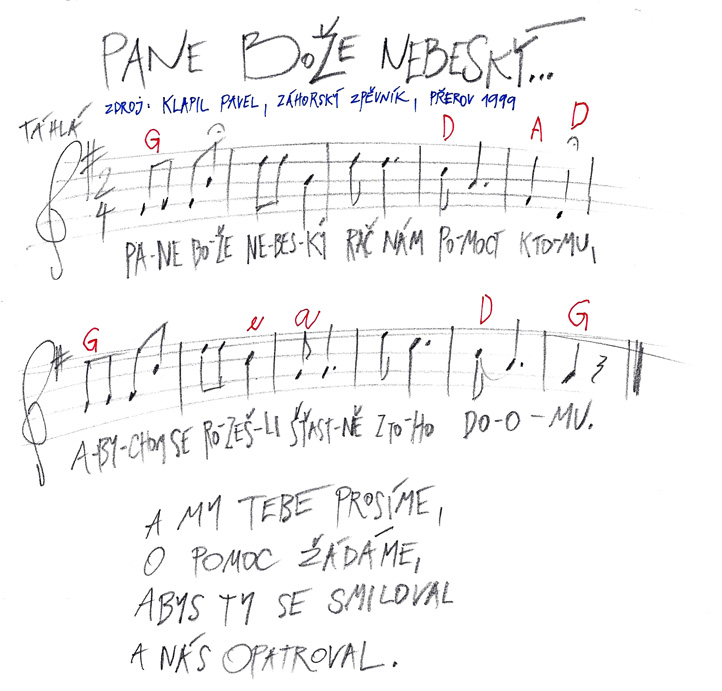 PANE BOŽE NEBESKÝ...
ZDROJ: KLAPIL PAVEL, ZÁHORSKÝ ZPĚVNÍK, PŘEROV 1999
TÁHLÁ
G D A D
2
4
PA-NE BO-ŽE NE-BES-KÝ RAČ NÁM PO-MOCT KTO-MU,
G e a D G
A-BY-CHOM SE RO-ZEŠ-LI ŠŤAST-NĚ Z TO-HO DO-O-MU.
A MY TEBE PROSÍME,
O POMOC ŽÁDÁME,
ABYS TY SE SMILOVAL
A NÁS OPATROVAL.